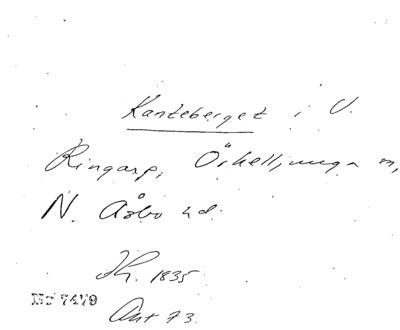 Kanteberget i V.
Ringarp, Örkelljunga sn,
N. Åsbo hd.
Jh. 1835
Nr 7479
Ant 73.